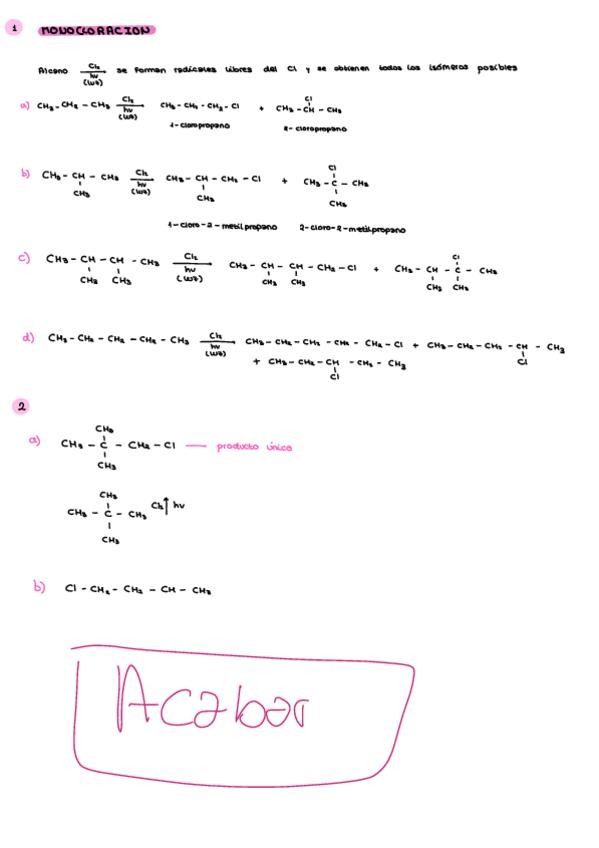 1 MONOCLORACION
Alcano Cl₂ / hν (luz) se forman radicales libres del Cl y se obtienen todos los isómeros posibles
a) CH₃-CH₂-CH₃ Cl₂ / hν (luz) CH₃-CH₂-CH₂-Cl + CH₃-CH-CH₃
Cl
1-cloropropano 2-cloropropano
b) CH₃-CH-CH₃ Cl₂ / hν (luz) CH₃-CH-CH₂-Cl + CH₃-C-CH₃
CH₃ CH₃ Cl CH₃
1-cloro-2-metilpropano 2-cloro-2-metilpropano
c) CH₃-CH-CH-CH₃ Cl₂ / hν (luz) CH₃-CH-CH-CH₂-Cl + CH₃-CH-C-CH₃
CH₃ CH₃ CH₃ CH₃ Cl CH₃ CH₃
d) CH₃-CH₂-CH₂-CH₂-CH₃ Cl₂ / hν (luz) CH₃-CH₂-CH₂-CH₂-CH₂-Cl + CH₃-CH₂-CH₂-CH-CH₃
Cl
+ CH₃-CH₂-CH-CH₂-CH₃
Cl
2
CH₃
a) CH₃-C-CH₂-Cl — producto único
CH₃
CH₃
CH₃-C-CH₃ Cl₂↑hν
CH₃
b) Cl-CH₂-CH₂-CH-CH₃
Acabar